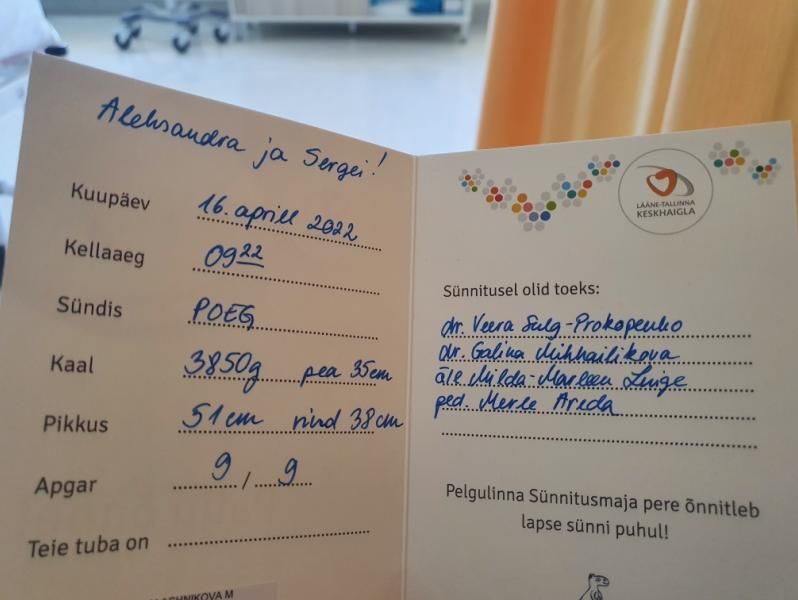 Aleksandra ja Sergei!
Kuupäev 16. aprill 2022
Kellaaeg 09 22
Sündis POEG
Kaal 3850g pea 35cm
Pikkus 51cm rind 38cm
Apgar 9 / 9
Teie tuba on
LÄÄNE-TALLINNA
KESKHAIGLA
Sünnitusel olid toeks:
dr. Veera Sulg-Prokopenko
dr. Galina Mihhailikova
äle Milda-Marleen
ped. Merle Areda
Pelgulinna Sünnitusmaja pere õnnitleb
lapse sünni puhul!